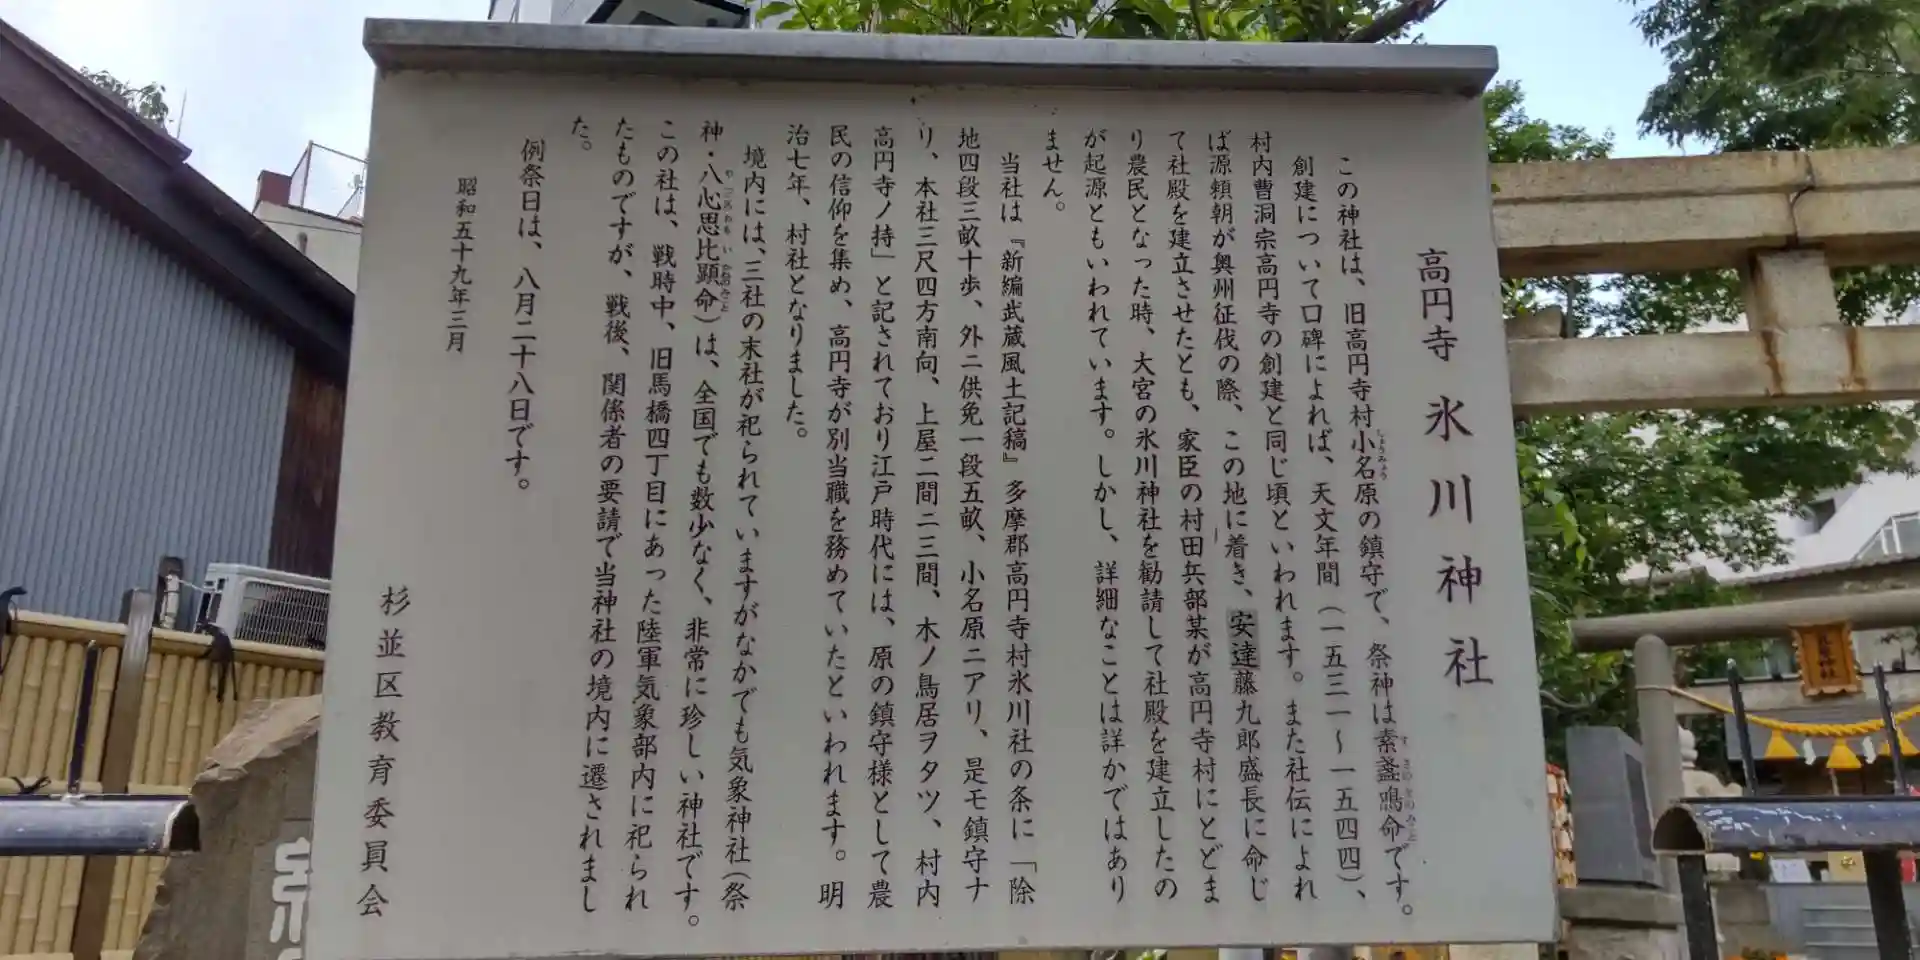 高円寺 氷川神社
この神社は、旧高円寺村小名原の鎮守で、祭神は素盞鳴命です。
創建について口碑によれば、天文年間（一五三一～一五四四）、
村内曹洞宗高円寺の創建と同じ頃といわれます。また社伝によれ
ば源頼朝が奥州征伐の際、この地に着き、安達藤九郎盛長に命じ
て社殿を建立させたとも、家臣の村田兵部某が高円寺村にとどま
り農民となった時、大宮の氷川神社を勧請して社殿を建立したの
が起源ともいわれています。しかし、詳細なことは詳かではあり
ません。
当社は『新編武蔵風土記稿』多摩郡高円寺村氷川社の条に「除
地四段三畝十歩、外ニ供免一段五畝、小名原ニアリ、是モ鎮守ナ
リ、本社三尺四方南向、上屋二間ニ三間、木ノ鳥居ヲタツ、村内
高円寺ノ持」と記されており江戸時代には、原の鎮守様として農
民の信仰を集め、高円寺が別当職を務めていたといわれます。明
治七年、村社となりました。
境内には、三社の末社が祀られていますがなかでも気象神社（祭
神・八心思比顕命）は、全国でも数少なく、非常に珍しい神社です。
この社は、戦時中、旧馬橋四丁目にあった陸軍気象部内に祀られ
たものですが、戦後、関係者の要請で当神社の境内に遷されまし
た。
例祭日は、八月二十八日です。
昭和五十九年三月
杉並区教育委員会